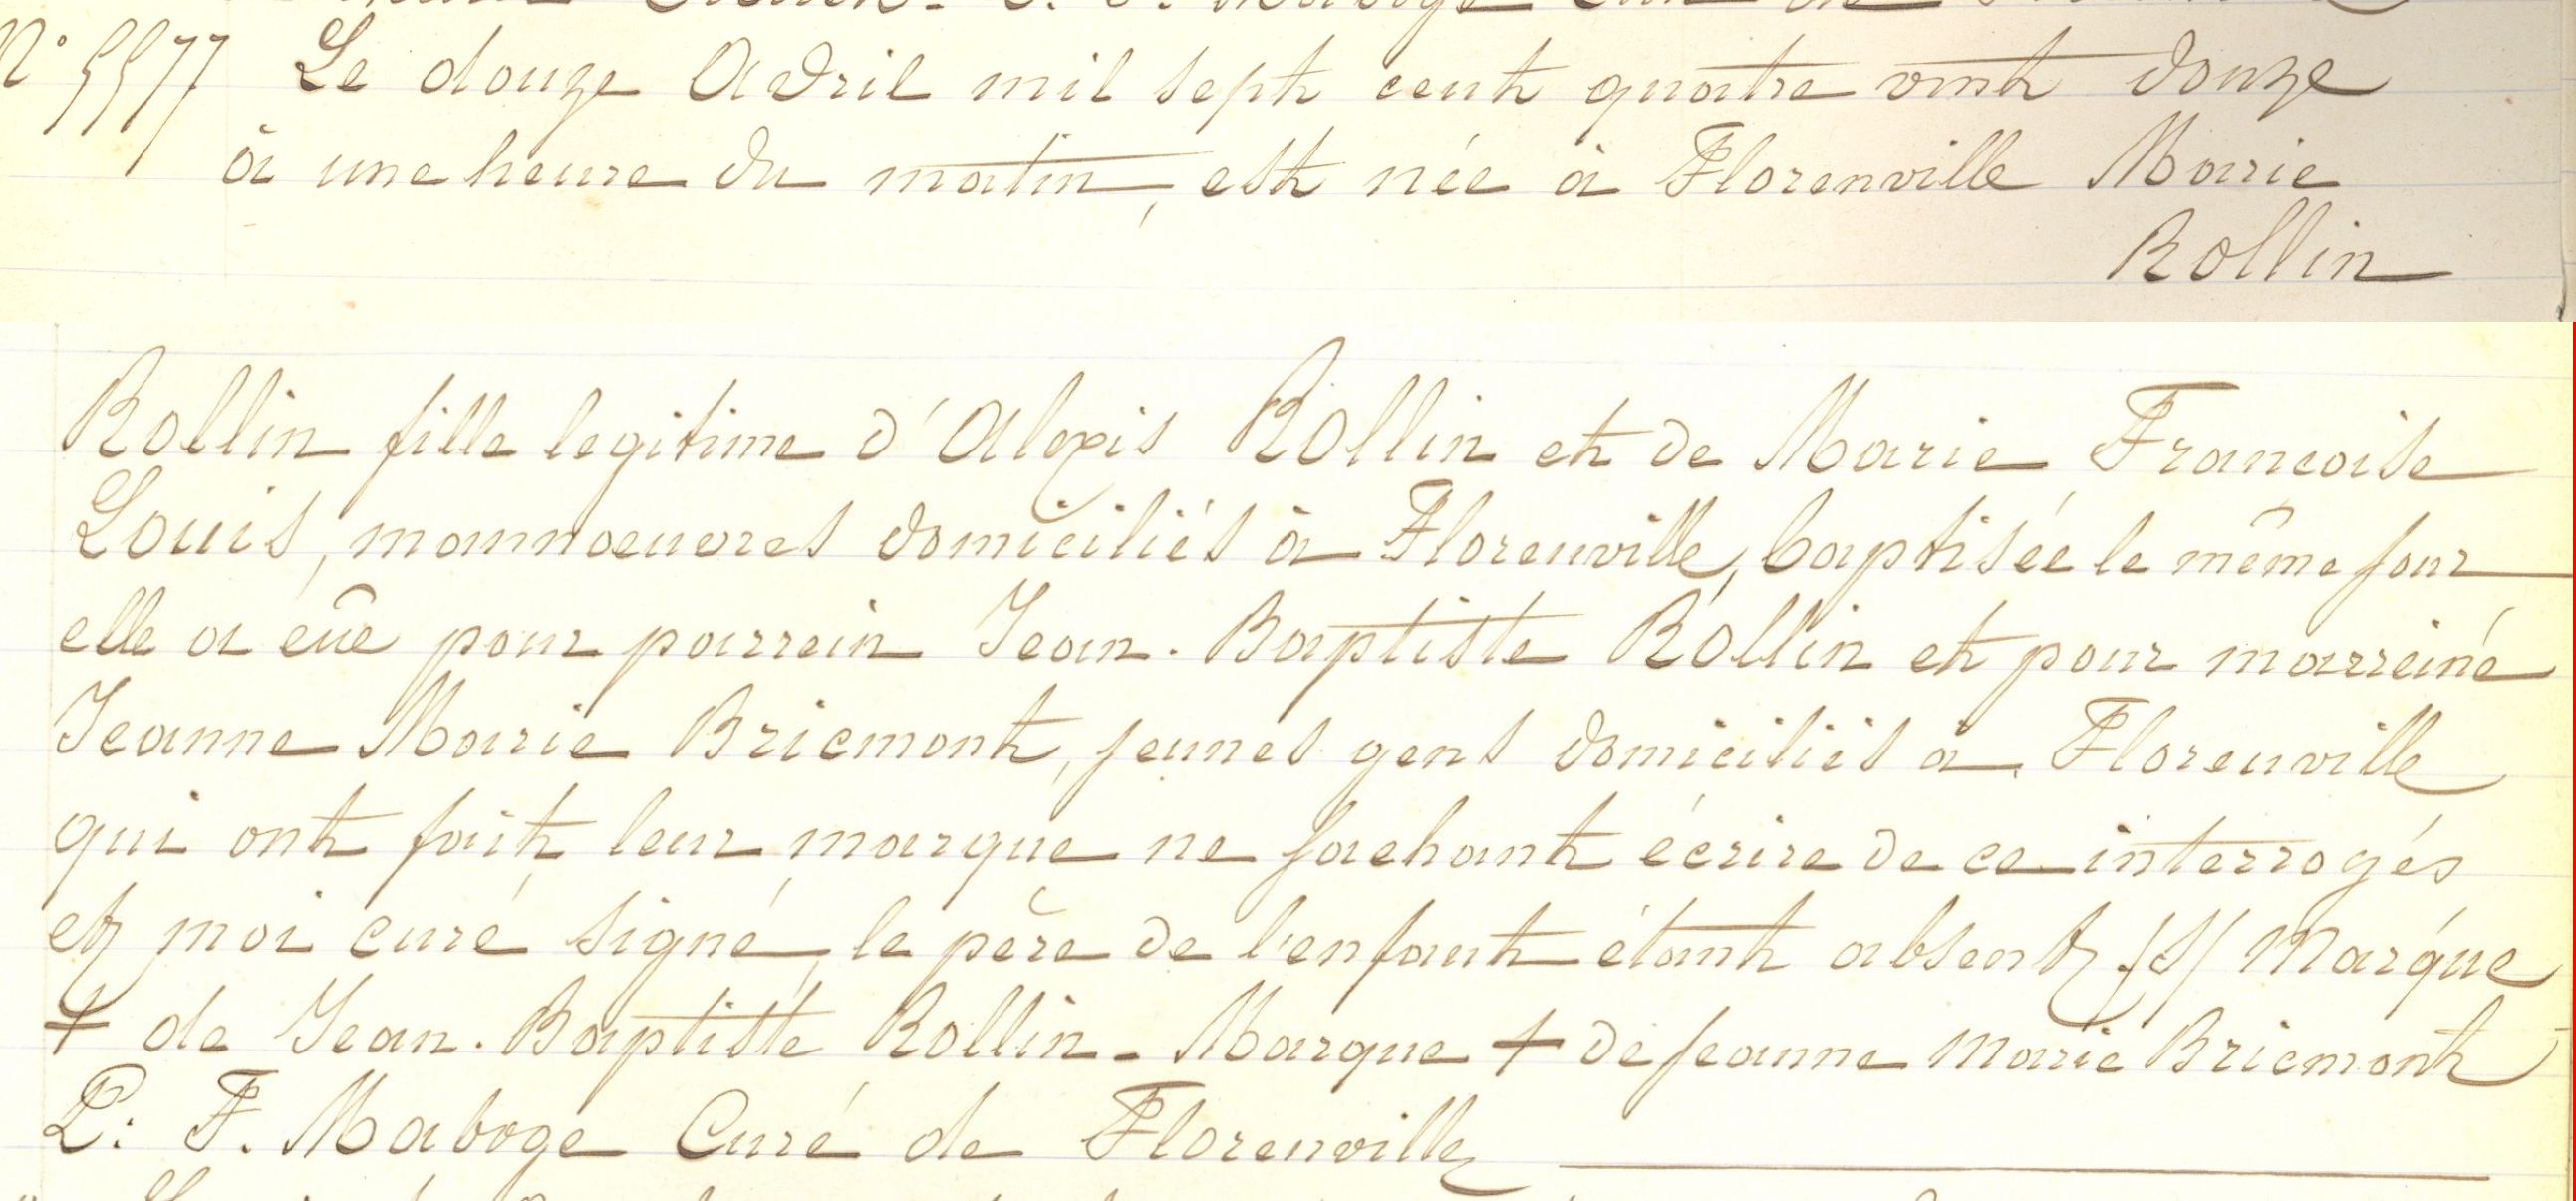 N° 5577 Le douze Avril mil sept cent quatre vint douze
à une heure du matin, est née à Florenville Marie
Rollin
Rollin fille legitime d'Alexis Rollin et de Marie Francoise
Louis, mannoeuvres domiciliés à Florenville, baptisée le même jour
elle a eûe pour parrein Jean-Baptiste Rollin et pour marreine
Jeanne Marie Bricmont, jeunes gens domiciliés à Florenville
qui ont fait leur marque ne sachant écrire de ce interrogés
et moi curé signé, le père de l'enfant étant absent /S/ Marque
+ de Jean-Baptiste Rollin - Marque + de Jeanne Marie Bricmont
P: F. Maboge Curé de Florenville